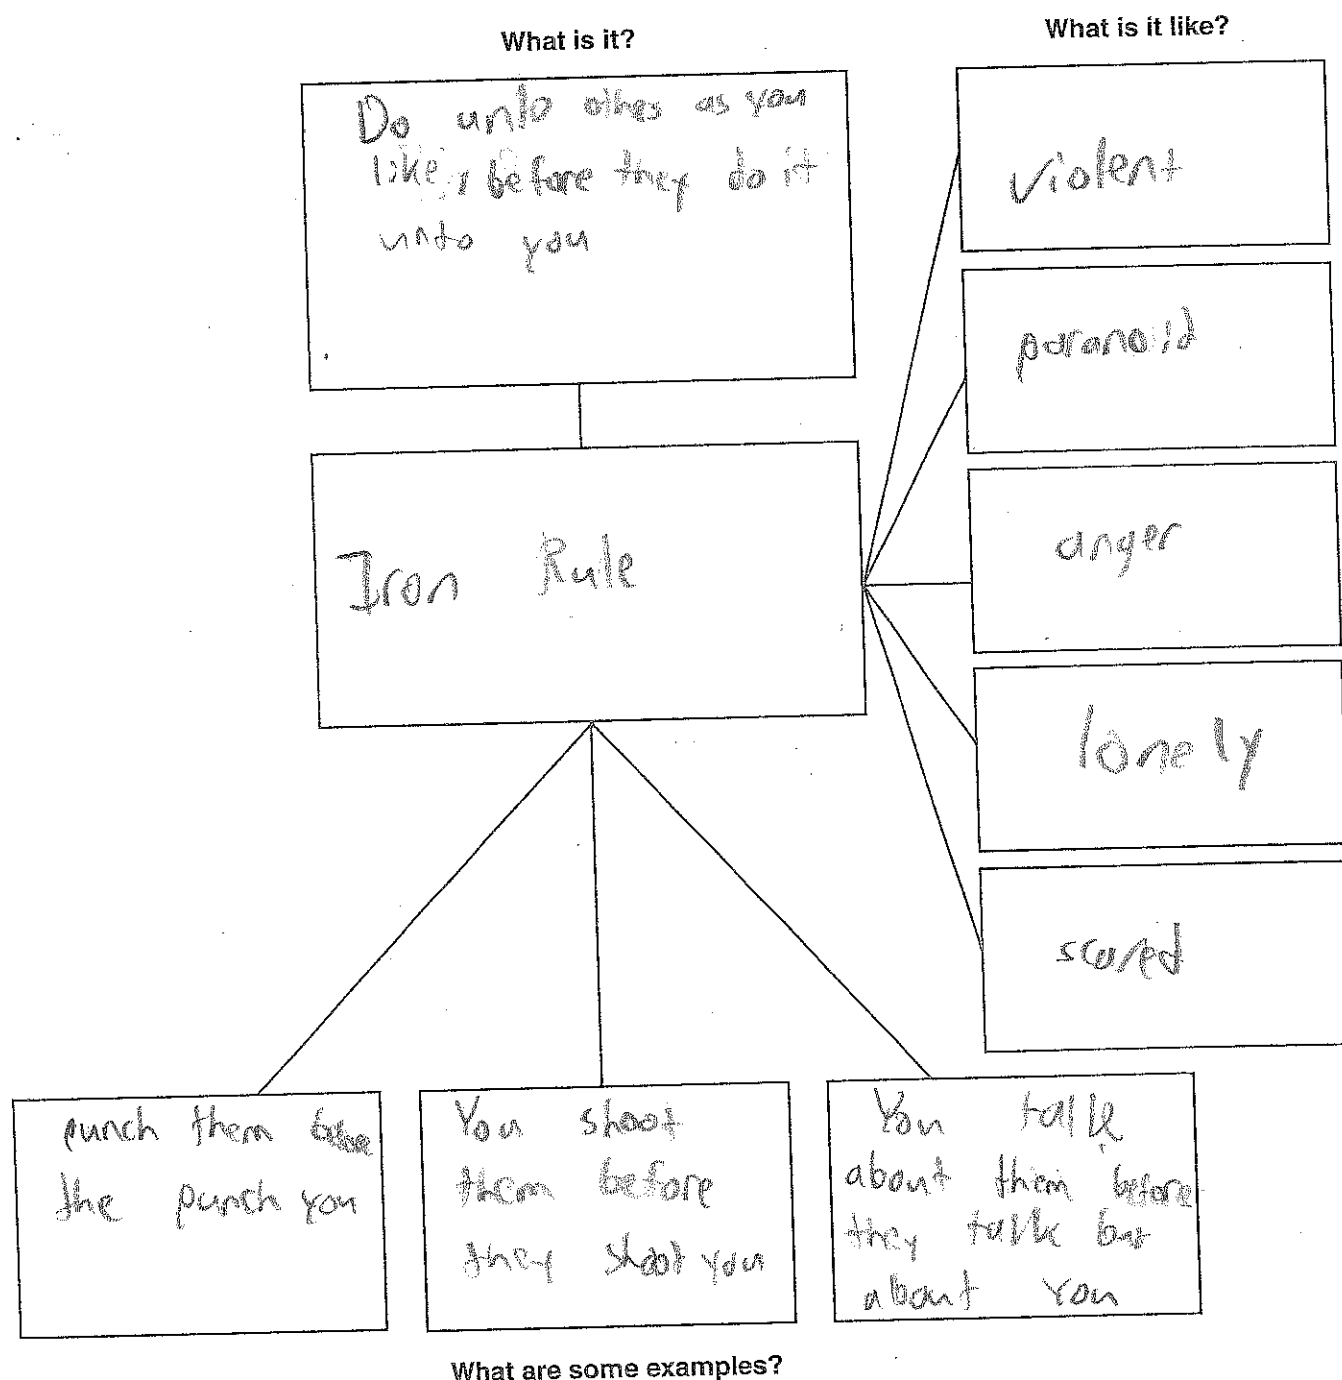 What is it?
Do unto othes as you
like, before they do it
unto you
What is it like?
violent
paranoid
anger
lonely
scared
Iron Rule
punch them before
the punch you
You shoot
them before
they shoot you
You talk
about them before
they talk
about You
What are some examples?